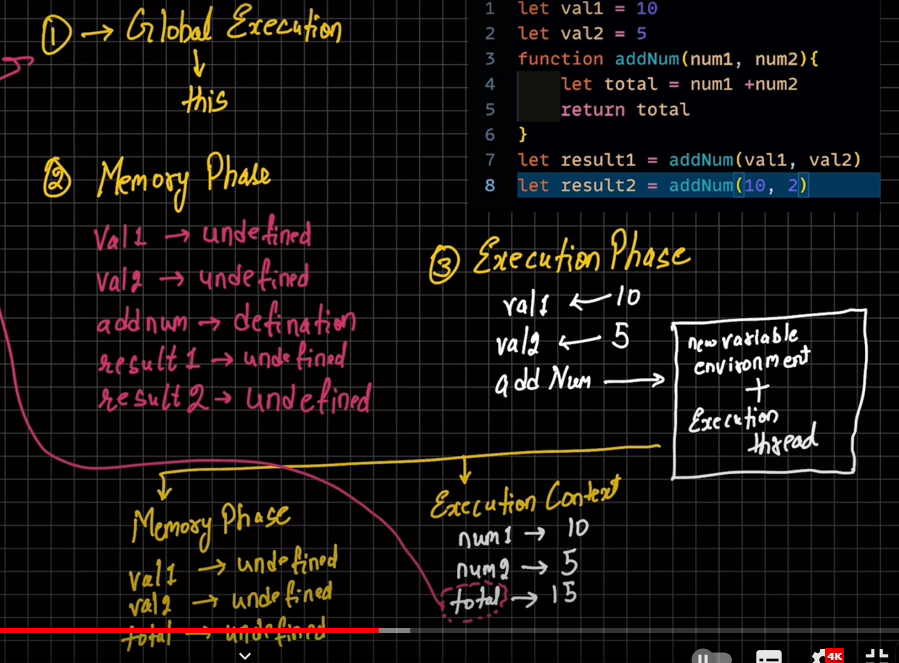 ① → Global Execution
↓
this
② Memory Phase
Val1 → undefined
val2 → undefined
addnum → defination
result1 → undefined
result2 → undefined
1 let val1 = 10
2 let val2 = 5
3 function addNum(num1, num2){
4 let total = num1 +num2
5 return total
6 }
7 let result1 = addNum(val1, val2)
8 let result2 = addNum(10, 2)
③ Execution Phase
val1 ← 10
val2 ← 5
add Num →
new variable
environment
+
Execution
thread
Memory Phase
val1 → undefined
val2 → undefined
total → undefined
Execution Context
num1 → 10
num2 → 5
total → 15
4K